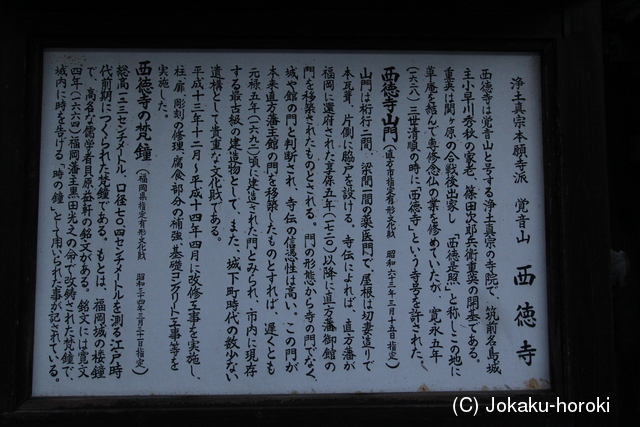 浄土真宗本願寺派　覚音山　西徳寺
西徳寺は覚音山と号する浄土真宗の寺院で、筑前名島城
主小早川秀秋の家老、篠田次郎兵衛重英の開基である。
重英は関ヶ原の合戦後出家し、「西徳是照」と称しこの地に
草庵を結んで専修念仏の業を修めていたが、寛永五年
(一六二八)三世清順の時に「西徳寺」という寺号を許された。
西徳寺山門(直方市指定有形文化財　昭和六十三年三月十五日指定)
山門は桁行二間、梁間一間の薬医門で、屋根は切妻造りで
本瓦葺、片側に脇戸を設ける。寺伝によれば、直方藩が
福岡に還府された享保五年(一七二〇)以降に直方藩御館の
門を移築されたものとされる。門の形態から寺の門でなく、
城や館の門と判断され、寺伝の信憑性は高い。この門が
本来直方藩主館の門を移築したものとすれば、遅くとも
元禄五年(一六九二)頃に建造された門とみられ、市内に現存
する最古級の建造物として、また、城下町時代の数少ない
遺構として貴重な文化財である。
平成十三年十二月〜平成十四年四月に改修工事を実施し、
柱、扉、彫刻の修理、腐食部分の補強、基礎コンクリート工事等を
実施した。
西徳寺の梵鐘(福岡県指定有形文化財　昭和三十四年三月三十一日指定)
総高一三一センチメートル、口径七〇・四センチメートルを測る江戸時
代前期につくられた梵鐘である。もとは、福岡城の楼鐘
で、高名な儒学者貝原益軒の銘文がある。銘文には寛文
四年(一六六四)福岡藩主黒田光之の命で改鋳された梵鐘で、
城内に時を告げる「時の鐘」として用いられた事が記されている。
(C) Jokaku-horoki